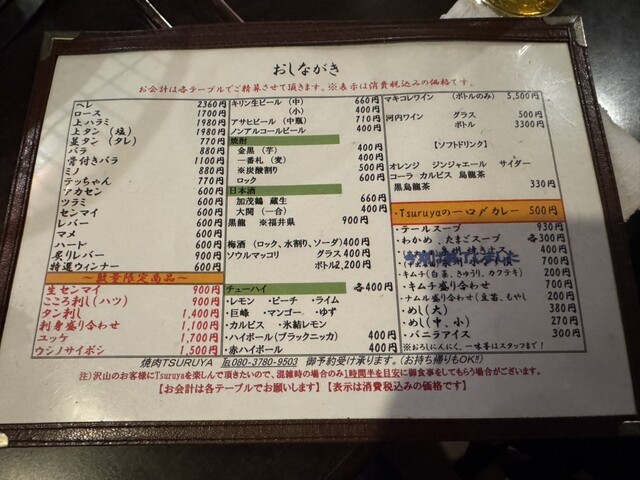 おしながき
お会計は各テーブルでご精算させて頂きます。※表示は消費税込みの価格です。
ヘレ 2360円
ロース 1700円
上ハラミ 1980円
上タン (塩) 1980円
並タン (タレ) 770円
バラ 880円
骨付きバラ 1100円
ミノ 880円
テッちゃん 770円
アカセン 600円
ツラミ 600円
センマイ 600円
レバー 600円
マメ 600円
ハード 600円
炙りレバー 900円
特選ウィンナー 600円
～数量限定商品～
生センマイ 900円
こころ刺し(ハツ) 900円
タン刺し 1,400円
刺身盛り合わせ 1,100円
ユッケ 1,700円
ウシノサイボシ 1,500円
キリン生ビール (中) 660円
(小) 400円
アサヒビール (中瓶) 710円
ノンアルコールビール 400円
焼酎
金黒 (芋) 400円
一番札 (麦) 400円
※炭酸割り 500円
ロック 400円
日本酒
加茂鶴 蔵生 660円
大関 (一合) 400円
黒龍 ※福井県 900円
梅酒 (ロック、水割り、ソーダ) 400円
ソウルマッコリ グラス 400円
ボトル 2,200円
チューハイ 各400円
・レモン ・ピーチ ・ライム
・巨峰 ・マンゴー ・ゆず
・カルピス ・氷結レモン
・ハイボール(ブラックニッカ) 400円
・赤ハイボール 400円
マキコレワイン (ボトルのみ) 5,500円
河内ワイン グラス 500円
ボトル 3300円
【ソフトドリンク】
オレンジ ジンジャエール サイダー
コーラ カルピス 烏龍茶
黒烏龍茶 330円
・Tsuruyaの一口〆カレー 500円
・テールスープ 930円
・わかめ 、たまごスープ 各300円
400円
・キムチ(白菜、きゅうり、カクテキ) 200円
・キムチ盛り合わせ 700円
・ナムル盛り合わせ(豆苗、もやし) 200円
・めし(大) 380円
・めし(中、小) 270円
・バニラアイス 300円
※おろしにんにく、一味等はスタッフまで!
焼肉TSURUYA ℡080-3780-9503 御予約受け承ります。(お持ち帰りもOK!!)
注)沢山のお客様にTsuruyaを楽しんで頂きたいので、混雑時の場合のみ1時間半を目安に御食事をしてもらう場合がございます。
【お会計は各テーブルでお願いします】【表示は消費税込みの価格です】